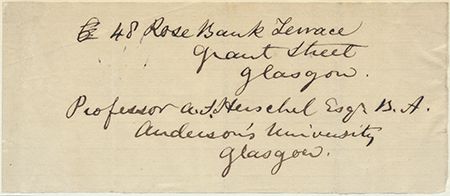 48 Rose Bank Terrace
Grant Street
Glasgow.
Professor A.S. Herschel Esqr. B.A.
Anderson's University
Glasgow.